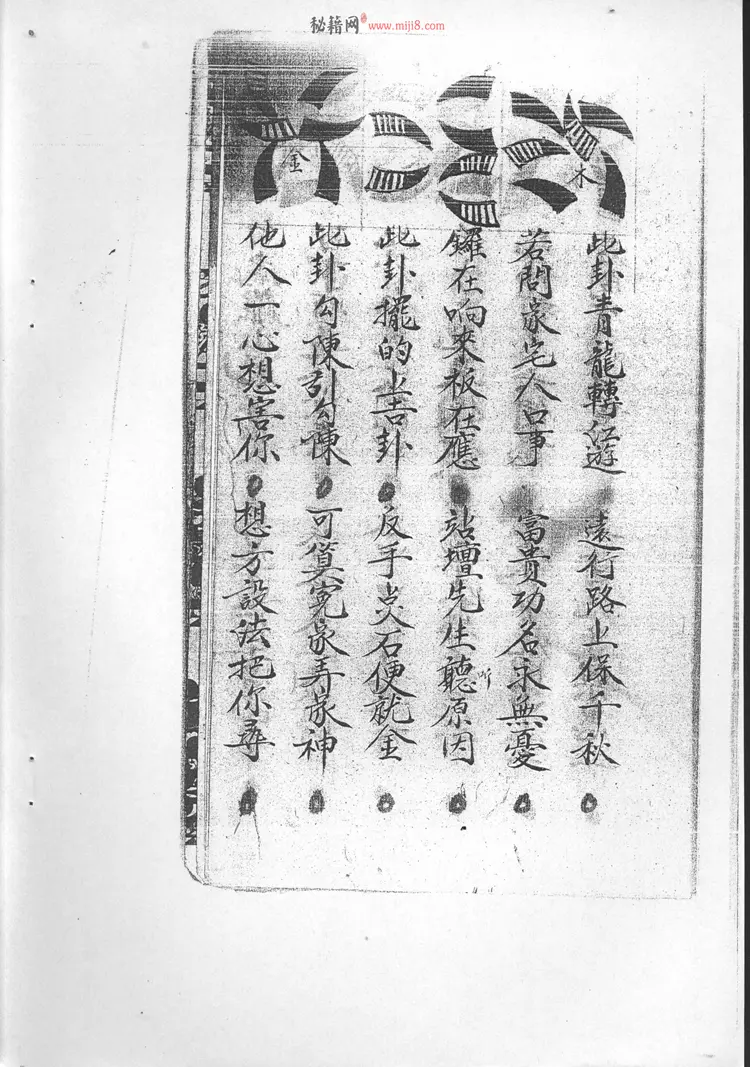 秘籍网 www.miji8.com
木
金
此卦青龍轉江遊 遠行路上保千秋
若問家宅人口事 富貴功名永無憂
鑼在响來板在應 站壇先生聽听原因
此卦擺的上吉卦 反手点石便就金
此卦勾陳引勾陳 可算冤家弄家神
他人一心想害你 想方設法把你尋